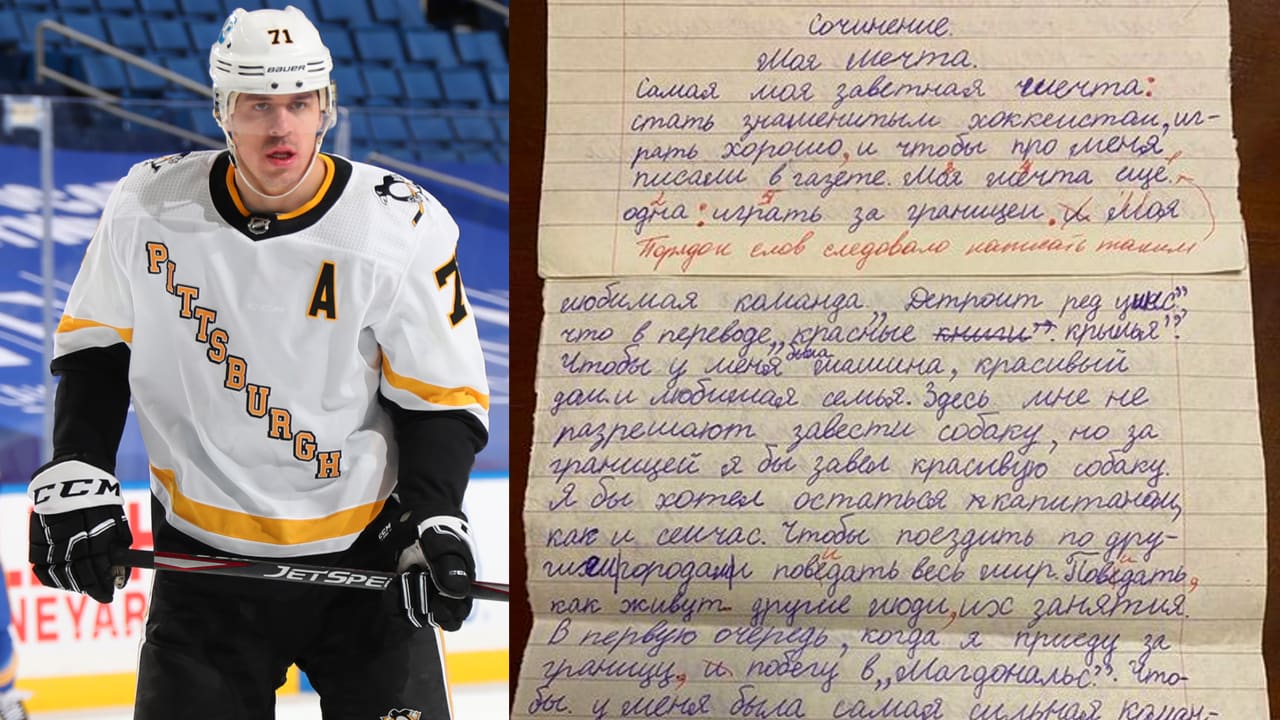 71
BAUER
PITTSBURGH
A
7
CCM
CCM
JETSPEE
NEYAR
Сочинение.
Моя мечта.
Самая моя заветная мечта:
стать знаменитым хоккеистом, иг-
рать хорошо, и чтобы про меня
писали в газете. Моя мечта еще
одна: играть за границей. И Моя
Порядок слов следовало написать таким
любимая команда „Детроит ред уинс”
что в переводе „красные книги”. крылья”.
Чтобы у меня была машина, красивый
дом и любимая семья. Здесь мне не
разрешают завести собаку, но за
границей я бы завел красивую собаку.
Я бы хотел остаться капитаном,
как и сейчас. Чтобы поездить по дру-
гим городам и поведать весь мир. Поведать,
как живут другие люди, их занятия.
В первую очередь, когда я приеду за
границу, и побегу в „Магдональс”. Что-
бы у меня была самая сильная коман-